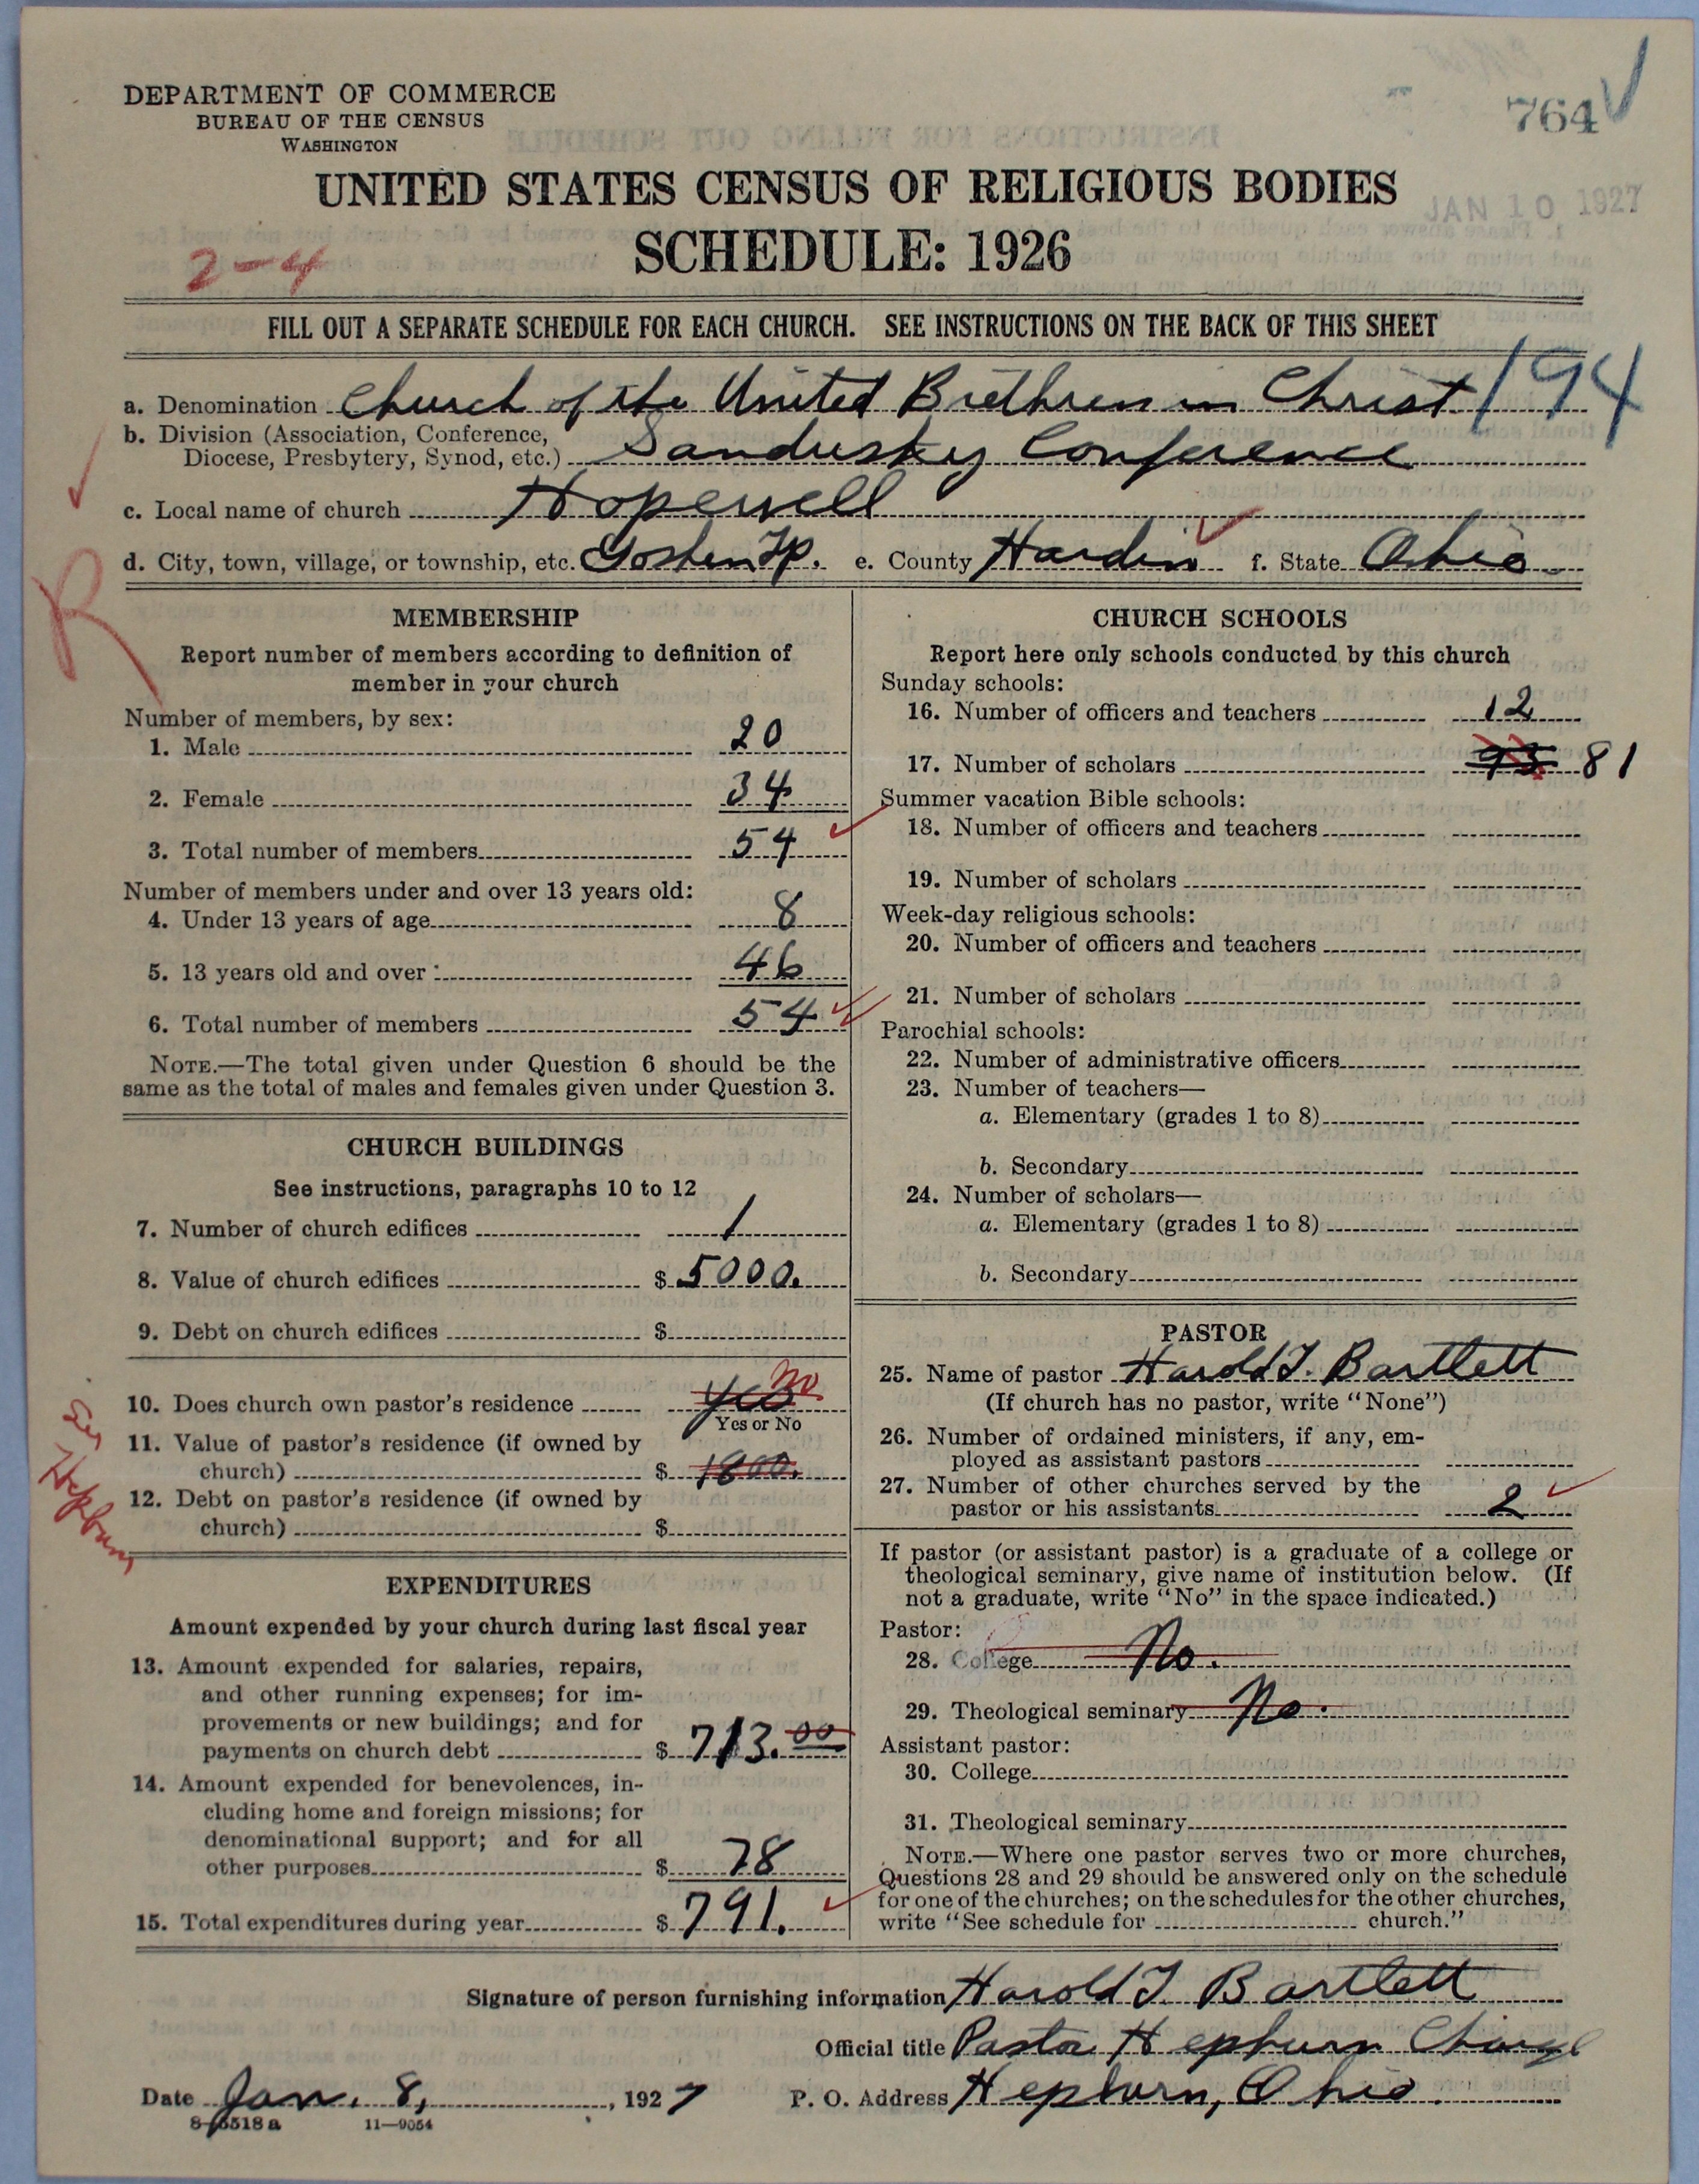 764
DEPARTMENT OF COMMERCE
BUREAU OF THE CENSUS
WASHINGTON
UNITED STATES CENSUS OF RELIGIOUS BODIES
JAN 10 1927
SCHEDULE: 1926
2-4
FILL OUT A SEPARATE SCHEDULE FOR EACH CHURCH. SEE INSTRUCTIONS ON THE BACK OF THIS SHEET
194
a. Denomination Church of the United Brethren in Christ
b. Division (Association, Conference,
Diocese, Presbytery, Synod, etc.) Sandusky Conference
c. Local name of church Hopewell
d. City, town, village, or township, etc. Goshen Tp. e. County Hardin f. State Ohio
R
MEMBERSHIP
Report number of members according to definition of
member in your church
Number of members, by sex:
1. Male 20
2. Female 34
3. Total number of members 54
Number of members under and over 13 years old:
4. Under 13 years of age 8
5. 13 years old and over 46
6. Total number of members 54
NOTE.—The total given under Question 6 should be the
same as the total of males and females given under Question 3.
CHURCH BUILDINGS
See instructions, paragraphs 10 to 12
7. Number of church edifices 1
8. Value of church edifices $ 5000.
9. Debt on church edifices $
10. Does church own pastor's residence Yes No
Yes or No
11. Value of pastor's residence (if owned by
church) $ 1800.
12. Debt on pastor's residence (if owned by
church) $
Hepburn
EXPENDITURES
Amount expended by your church during last fiscal year
13. Amount expended for salaries, repairs,
and other running expenses; for im-
provements or new buildings; and for
payments on church debt $ 713.00
14. Amount expended for benevolences, in-
cluding home and foreign missions; for
denominational support; and for all
other purposes $ 78
15. Total expenditures during year $ 791.
CHURCH SCHOOLS
Report here only schools conducted by this church
Sunday schools:
16. Number of officers and teachers 12
17. Number of scholars 93 81
Summer vacation Bible schools:
18. Number of officers and teachers
19. Number of scholars
Week-day religious schools:
20. Number of officers and teachers
21. Number of scholars
Parochial schools:
22. Number of administrative officers
23. Number of teachers—
a. Elementary (grades 1 to 8)
b. Secondary
24. Number of scholars—
a. Elementary (grades 1 to 8)
b. Secondary
PASTOR
25. Name of pastor Harold T. Bartlett
(If church has no pastor, write "None")
26. Number of ordained ministers, if any, em-
ployed as assistant pastors
27. Number of other churches served by the
pastor or his assistants 2
If pastor (or assistant pastor) is a graduate of a college or
theological seminary, give name of institution below. (If
not a graduate, write "No" in the space indicated.)
Pastor:
28. College No.
29. Theological seminary No.
Assistant pastor:
30. College
31. Theological seminary
NOTE.—Where one pastor serves two or more churches,
Questions 28 and 29 should be answered only on the schedule
for one of the churches; on the schedules for the other churches,
write "See schedule for church."
Signature of person furnishing information Harold T. Bartlett
Official title Pastor Hepburn Charge
Date Jan. 8, 1927 P. O. Address Hepburn, Ohio.
8-5518a 11-9054